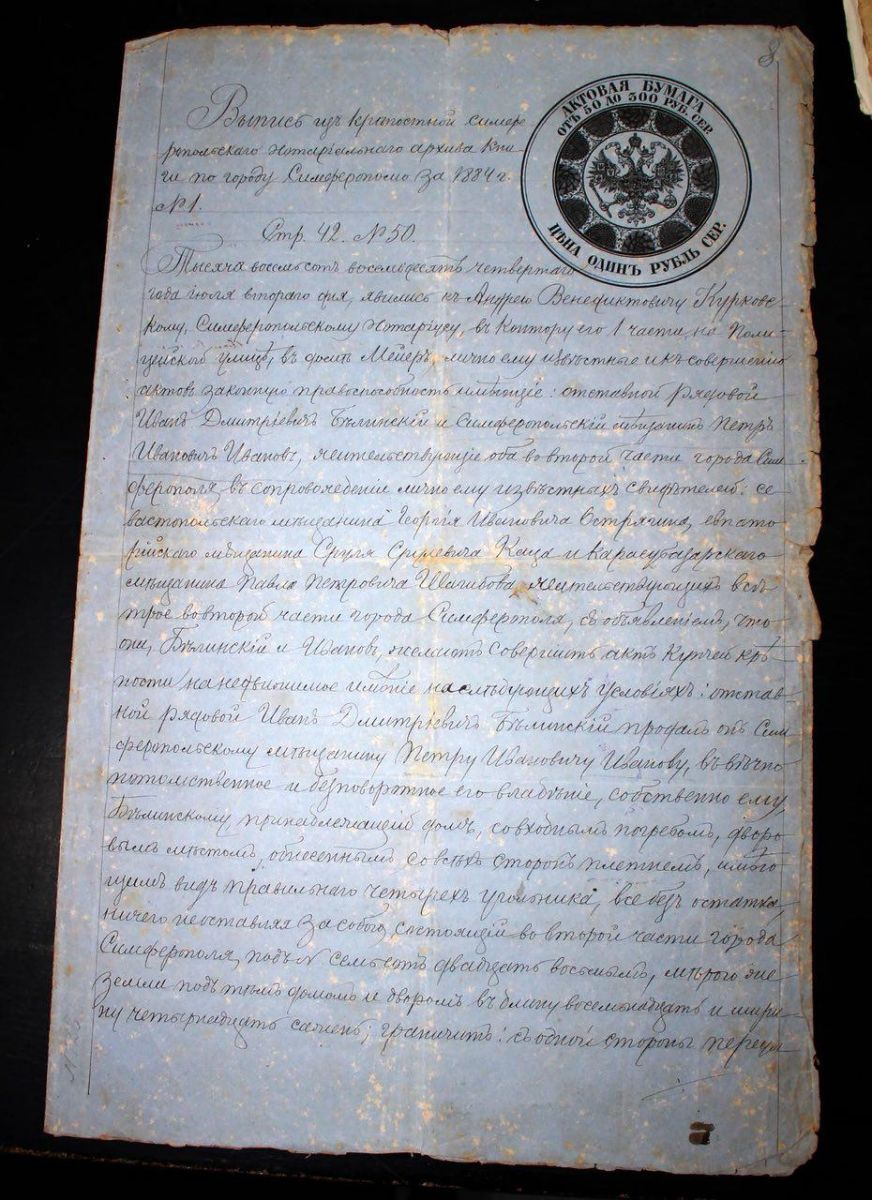 8
АКТОВАЯ БУМАГА
ОТЪ 50 ДО 300 РУБ. СЕР.
ЦѢНА ОДИНЪ РУБЛЬ СЕР.
Выпись изъ крѣпостной симфе
ропольскаго нотаріальнаго архива кни-
ги по городу Симферополю за 1884 г.
№ 1.
Стр. 42. № 50.
Тысяча восемьсотъ восемьдесятъ четвертаго
года іюля втораго дня, явились къ Андрею Венедиктовичу Курковс-
кому, Симферопольскому Нотаріусу, въ контору его 1 части, на Поли-
цейской улицѣ, въ домѣ Мейеръ, лично ему извѣстные и къ совершенію
актовъ законную правоспособность имѣющіе: отставной рядовой
Иванъ Дмитріевичъ Бѣлинскій и Симферопольскій мѣщанинъ Петръ
Ивановичъ Ивановъ, жительствующіе оба во второй части города Сим
ферополя, въ сопровожденіи лично ему извѣстныхъ свидѣтелей: се
вастопольскаго мѣщанина Георгія Ивановича Острягина, евпато
рійскаго мѣщанина Сруля Срулевича Каца и Карасубазарскаго
мѣщанина Павла Петровича Шагибова, жительствующихъ всѣ
трое во второй части города Симферополя, съ объявленіемъ, что
они, Бѣлинскій и Ивановъ, желаютъ совершить актъ купчей крѣ
пости на недвижимое имѣніе на слѣдующихъ условіяхъ: отстав-
ной рядовой Иванъ Дмитріевичъ Бѣлинскій продалъ онъ Сим
феропольскому мѣщанину Петру Ивановичу Иванову, въ вѣчно
потомственное и безповоротное его владѣніе, собственно ему,
Бѣлинскому принадлежащій домъ, со входнымъ погребомъ, дворо
вымъ мѣстомъ, обнесеннымъ со всѣхъ сторонъ плетнемъ, имѣю
щимъ видъ правильнаго четырехъ угольника, все безъ остатка,
ничего не оставляя за собою, состоящій во второй части города
Симферополя, подъ № семьсотъ двадцать восьмымъ, мѣрою же
земли подъ тѣмъ домомъ и дворомъ въ длину восемьнадцать и шири
ну четырнадцать сажень; граничитъ: съ одной стороны переул